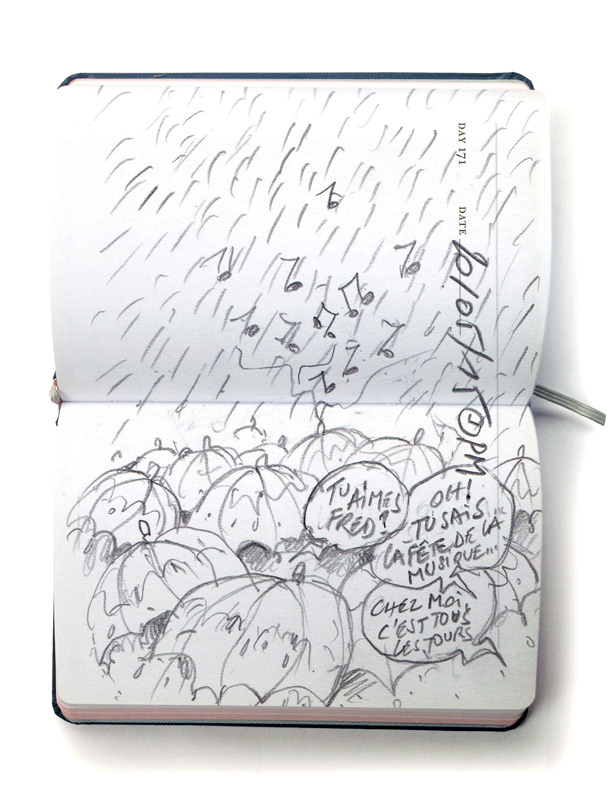 DAY 171
DATE
PM
TU AIMES
FRED?
OUH!
TU SAIS...
LA FÊTE DE LA
MUSIQUE...
CHEZ MOI
C'EST TOUS
LES JOURS